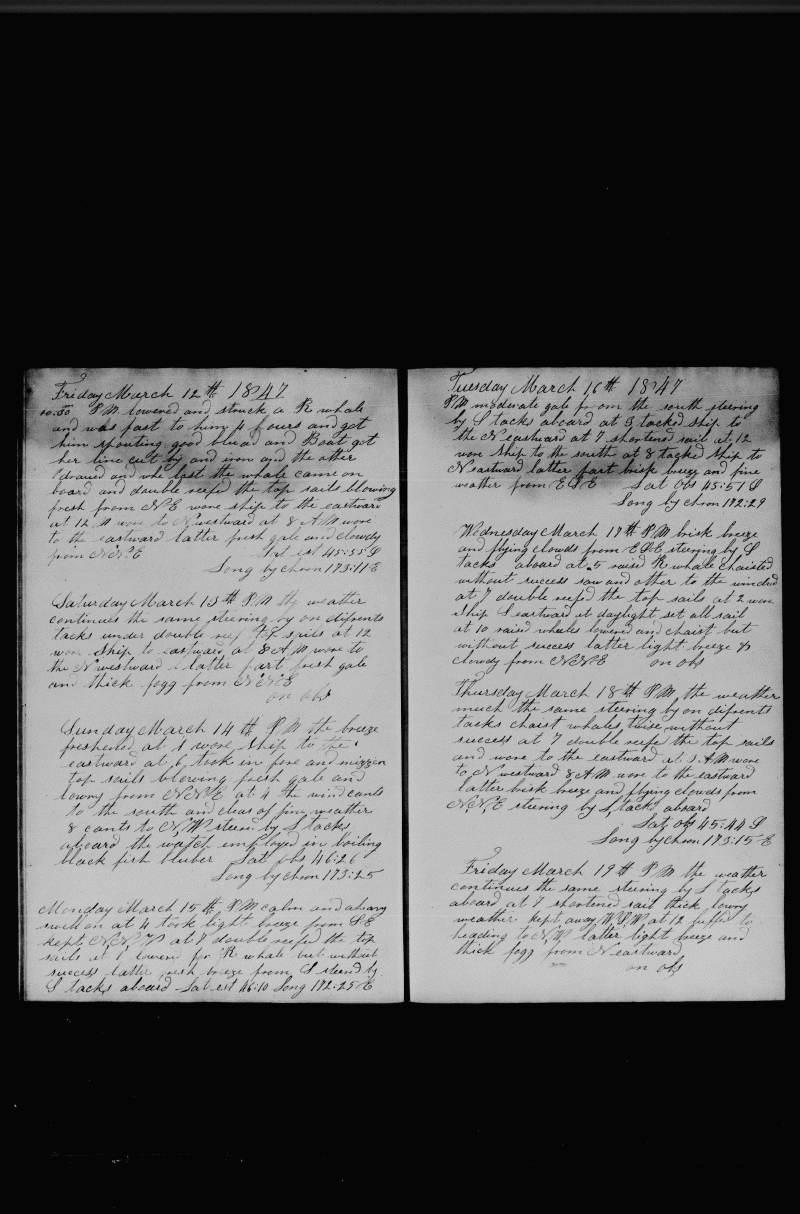 Friday March 12th 1847
10:00 P M lowered and struck a R whale
and was fast to him 4 hours and got
him spouting good blud and Boat got
her line cut by and iron and the other
drawed and we lost the whale came on
board and double reefed the top sails blowing
fresh from N E wore ship to the eastward
at 12 M wore to N westward at 8 A M wore
to the eastward latter fresh gale and clowdy
from N N E Lat est 45:55 S
Long by chron 173:11 E
Saturday March 13th P M the weather
continues the same steering by on difrents
tacks under double reef sails at 12
wore ship to eastward at 8 A M wore to
the N westward latter part fresh gale
and thick fogg from N N E
on obs
Sunday March 14th P M the breeze
freshened at 1 wore ship to the
eastward at 6 took in fore and mizzen
top sails blowing fresh gale and
lowry from N N E at 4 the wind cants
to the south and clear of fine weather
8 cants to N W steern by S tacks
aboard the watch employed in boiling
black fish bluber Lat obs 46:26
Long by chron 173:25
Monday March 15th P M calm and a heavy
swell on at 4 took light breeze from S E
kept N N W at 7 double reefed the top
sails at lowered for R whale but without
success latter fresh breeze from S steern by
S tacks aboard Lat est 46:10 Long 172:25 E
Tuesday March 16th 1847
P M moderate gale from the south steering
by S tacks aboard at 3 tacked ship to
the N eastward at 7 shortened sail at 12
wore ship to the south at 8 tacked ship to
N eastward latter part brisk breeze and fine
weather from E S E Lat Obs 45:51 S
Long by chron 172:29
Wednesday March 17th P M brisk breeze
and flying clowds from E S E steering by S
tacks aboard at 5 raised R whale chaisted
without success saw and other to the windard
at 7 double reefed the top sails at 2 wore
ship S eastward at daylight set all sail
at 10 raised whales lowered and chaist but
without success latter light breeze &
clowdy from N N E on obs
Thursday March 18th P M the weather
much the same steering by on difrents
tacks chaist whales twise without
success at 7 double reefe the top sails
and wore to the eastward at 3 A M wore
to N westward 8 A M wore to the eastward
latter brisk breeze and flying clowds from
N N E steering by S tacks aboard
Lat obs 45:44 S
Long by chron 173:15 E
Friday March 19th P M the weather
continues the same steering by S tacks
aboard at 7 shortened sail thick lowry
weather kept away W S W at 12 luffed to
heading to N W latter light breeze and
thick fogg from N eastward
on obs